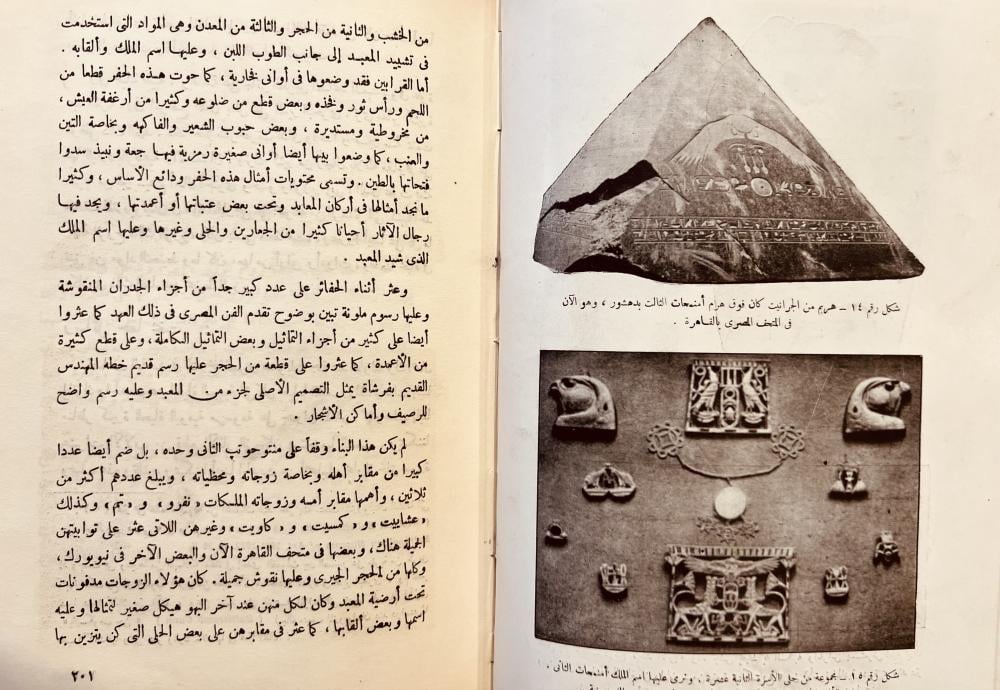 من الخشب والثانية من الحجر والثالثة من المعدن وهى المواد التى استخدمت
فى تشييد المعبد إلى جانب الطوب اللبن ، وعليها اسم الملك وألقابه .
أما القرابين فقد وضعوها فى أوانى فخارية ، كما حوت هذه الحفر قطعا من
اللحم ورأس ثور وفخذه وبعض قطع من ضلوعه وكثيرا من أرغفة العيش ،
من مخروطية ومستديرة ، وبعض حبوب الشعير والفاكهه وبخاصة التين
والعنب ، كما وضعوا بينها أيضا أوانى صغيرة رمزية فيها جعة ونبيذ سدوا
فتحاتها بالطين . وتسمى محتويات أمثال هذه الحفر ودائع الأساس ، وكثيرا
ما نجد أمثالها فى أركان المعابد وتحت بعض عتباتها أو أعمدتها ، ويجد فيها
رجال الآثار أحيانا كثيرا من الجعارين والحلى وغيرها وعليها اسم الملك
الذى شيد المعبد .
وعثر أثناء الحفائر على عدد كبير جداً من أجزاء الجدران المنقوشة
وعليها رسوم ملونة تبين بوضوح تقدم الفن المصرى فى ذلك العهد كما عثروا
أيضا على كثير من أجزاء التماثيل وبعض التماثيل الكاملة ، وعلى قطع كثيرة
من الأعمدة ، كما عثروا على قطعة من الحجر عليها رسم قديم خطه المهندس
القديم بفرشاة يمثل التصميم الأصلى لجزء من المعبد وعليه رسم واضح
للرصيف وأماكن الأشجار .
لم يكن هذا البناء وقفاً على منتوحوتب الثانى وحده ، بل ضم أيضا عددا
كبيرا من مقابر أهله وبخاصة زوجاته ومحظياته ، ويبلغ عددهم أكثر من
ثلاثين ، وأهمها مقابر أمه وزوجاته الملكات « نفرو » و « تم » وكذلك
« عشاييت » و « كمسيت » و « كاويت » وغيرهن اللاتى عثر على توابيتهن
الجميلة هناك ، وبعضها فى متحف القاهرة الآن والبعض الآخر فى نيويورك ،
وكلها من الحجر الجيرى وعليها نقوش جميلة . كان هؤلاء الزوجات مدفونات
تحت أرضية المعبد وكان لكل منهن عند آخر البهو هيكل صغير لتمثالها وعليه
اسمها وبعض ألقابها ، كما عثر فى مقابرهن على بعض الحلى التى كن يتزين بها
٢٠١
شكل رقم ١٤ – هريم من الجرانيت كان فوق هرام أمنمحات الثالث بدهشور ، وهو الآن
فى المتحف المصرى بالقاهرة .
شكل رقم ١٥ – مجموعة من حلى الأسرة الثانية عشرة . ونرى عليها اسم الملك أمنمحات الثانى .